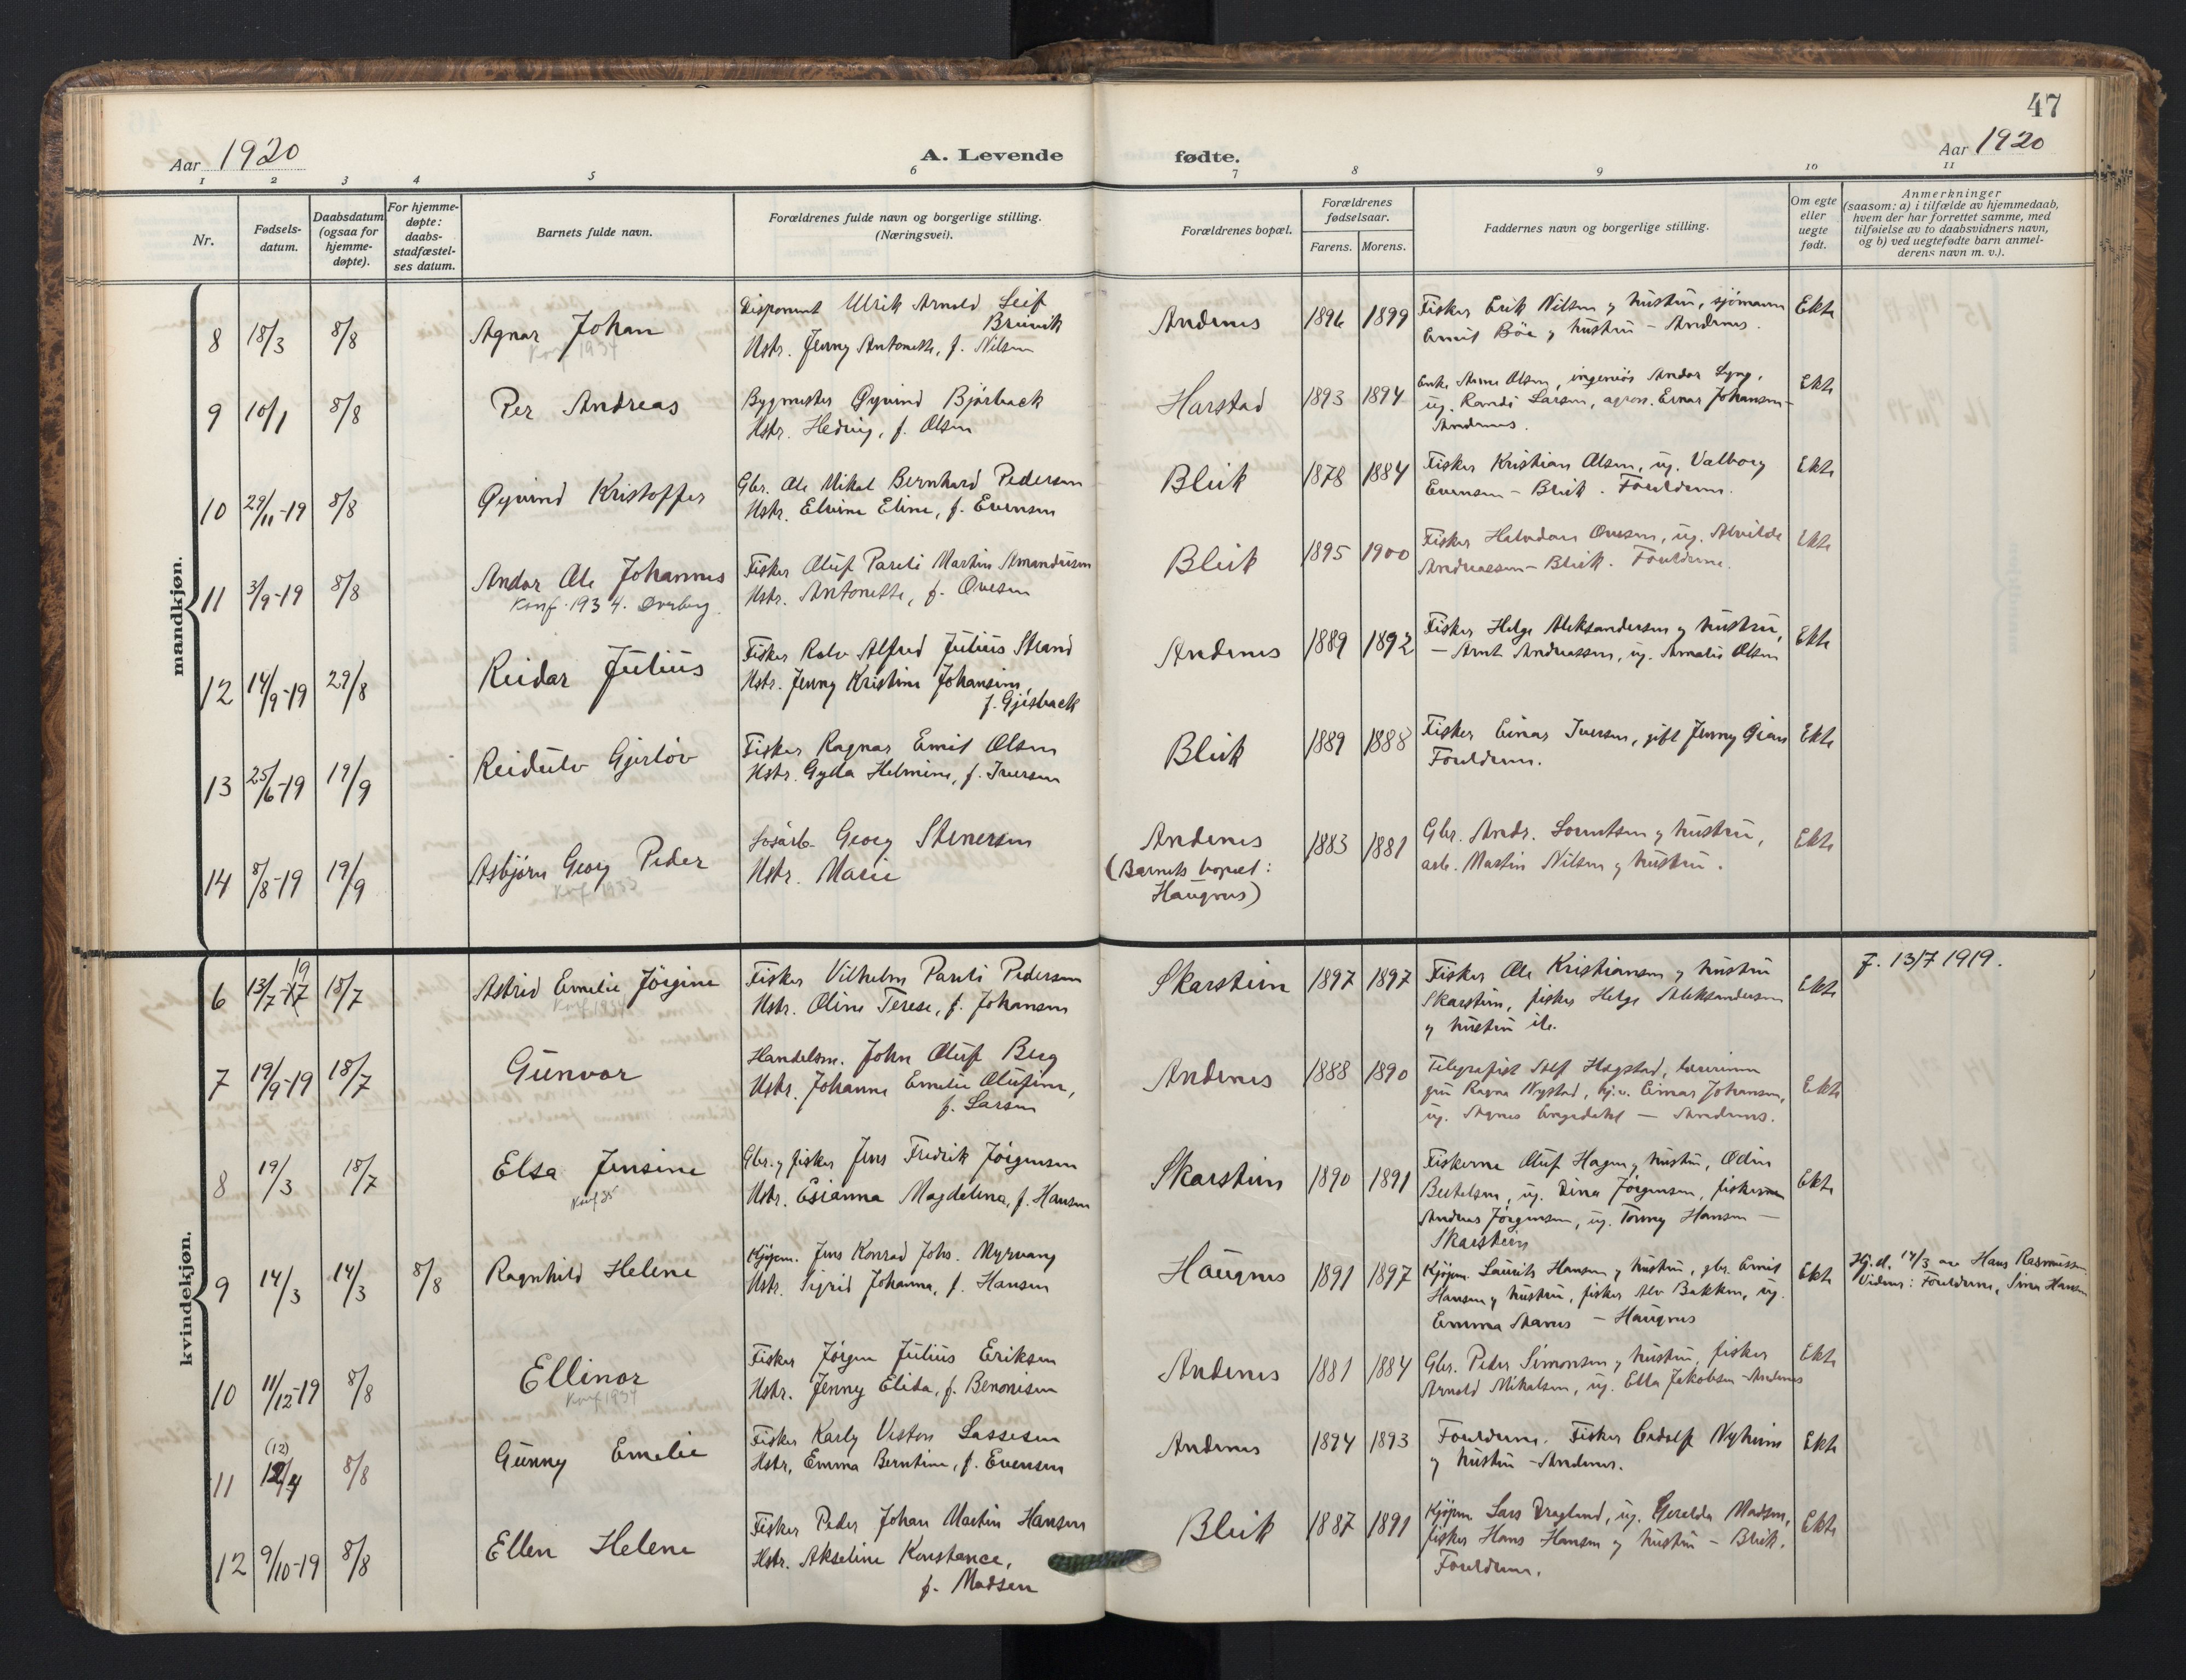 47
Aar 1920
A. Levende fødte.
Aar 1920
1 2 3 4 5 6 7 8 9 10 11
Nr.
Fødsels-
datum.
Daabsdatum
(ogsaa for
hjemme-
døpte).
For hjemme-
døpte:
daabs-
stadfæstel-
ses datum.
Barnets fulde navn.
Forældrenes fulde navn og borgerlige stilling.
(Næringsvei).
Forældrenes bopæl.
Forældrenes
fødselsaar.
Farens. Morens.
Faddernes navn og borgerlige stilling.
Om egte
eller
uegte
født.
Anmerkninger
(saasom: a) i tilfælde av hjemmedaab,
hvem der har forrettet samme, med
tilføielse av to daabsvidners navn,
og b) ved uegtefødte barn anmel-
derens navn m. v.).
mandkjøn.
8 18/3 8/8
Agnar Johan
Konf 1934
Disponent Ulrik Arnold Leif
Brunvik
Hstr. Jenny Antonette, f. Nilsen
Andenes
1896 1899
Fisker Erik Nilsen og hustru, sjömann
Emil Böe og hustru - Andenes.
Ekte
9 10/1 8/8
Per Andreas
Bygmester Øyvind Bjørbæck
Hstr. Hedvig, f. Olsen
Harstad
1893 1894
Enke Anna Olsen, ingeniör Andor Lyng,
ug. Randi Larsen, agron. Einar Johansen -
Andenes.
Ekte
10 29/11-19 8/8
Øyvind Kristoffer
Gbr. Ole Mikal Bernhard Pedersen
Hstr. Elvine Eline, f. Evensen
Bleik
1878 1884
Fisker Kristian Olsen, ug. Valborg
Evensen - Bleik. Foreldrene.
Ekte
11 3/9-19 8/8
Andor Ole Johannes
Konf. 1934. Dverberg.
Fisker Oluf Pareli Martin Amundsen
Hstr. Antonette, f. Ovesen
Bleik
1895 1900
Fisker Halvdan Ovesen, ug. Alvilde
Andreassen - Bleik. Foreldrene.
Ekte
12 14/9-19 29/8
Reidar Julius
Fisker Rolv Alfred Julius Strand
Hstr. Jenny Kristine Johansine
f. Gjisback
Andenes
1889 1892
Fisker Helge Aleksandersen og hustru,
- Arnt Andreassen, ug. Amalie Olsen
Ekte
13 25/6-19 19/9
Reidulv Gjerlöv
Fisker Ragnar Emil Olsen
Hstr. Gyda Helmine, f. Iversen
Bleik
1889 1888
Fisker Einar Iversen, gift Jenny
Foreldrene.
Ekte
14 8/8-19 19/9
Asbjörn Georg Peder
Konf 1933
Lösarb. Georg Stenersen
Hstr. Marie
Andenes
(Barnets bopæl:
Haugnes)
1883 1881
Gbr. Andr. Lorentsen og hustru,
arb. Martin Nilsen og hustru.
Ekte
kvindekjøn.
6 13/7-17 19 18/7
Astrid Emelie Jörgine
Konf 1934
Fisker Vilhelm Pareli Pedersen
Hstr. Oline Terese, f. Johansen
Skarstein
1897 1897
Fisker Ole Kristiansen og hustru
Skarstein, fisker Helge Aleksandersen
og hustru ib.
Ekte
f. 13/7 1919.
7 19/9-19 18/7
Gunvor
Handelsm. John Oluf Berg
Hstr. Johanna Emelie Olufine,
f. Larsen
Andenes
1888 1890
Telegrafist Alf Hagstad, lærerinne
frk Ragna Nystad, hj.v. Einar Johansen,
ug. Agnes Engedahl - Andenes.
Ekte
8 19/3 18/7
Elsa Jensine
Konf 35
Gbr. og fisker Jens Fredrik Jörgensen
Hstr. Esianna Magdelena, f. Hansen
Skarstein
1890 1891
Fiskerne Oluf Hagen og hustru, Odin
Bertelsen, ug. Dina Jörgensen, fiskeren
Andreas Jörgensen, ug. Tonny Hansen -
Skarstein
Ekte
9 14/3 14/3 8/8
Ragnhild Helene
Kjöpm. Jens Konrad Johs. Myrvang
Hstr. Sigrid Johanna, f. Hansen
Haugnes
1891 1897
Kjöpm. Laurits Hansen og hustru, gbr. Emil
Hansen og hustru, fisker Alv Bakken, ug.
Emma Aanes - Haugnes
Ekte
Hj.d. 14/3 av Hans Rasmussen.
Vidner: Foreldrene, Sina Hansen
10 11/12-19 8/8
Ellinor
Konf 1934
Fisker Jörgen Julius Eriksen
Hstr. Jenny Elida, f. Benonisen
Andenes
1881 1884
Gbr. Peder Simonsen og hustru, fisker
Arnold Mikalsen, ug. Ella Jakobsen - Andenes
Ekte
11 (12) 12/4 8/8
Gunny Emelie
Fisker Karly Viston Lassesen
Hstr, Emma Berntine, f. Evensen
Andenes
1894 1893
Foreldrene. Fisker Nyheim
og hustru - Andenes.
Ekte
12 9/10-19 8/8
Ellen Helene
Fisker Peder Johan Martin Hansen
Hstr. Akseline Konstance,
f. Madsen
Bleik
1887 1891
Kjöpm Lars Draglund, ug. Geralda Madsen,
fisker Hans Hansen og hustru - Bleik.
Foreldrene.
Ekte